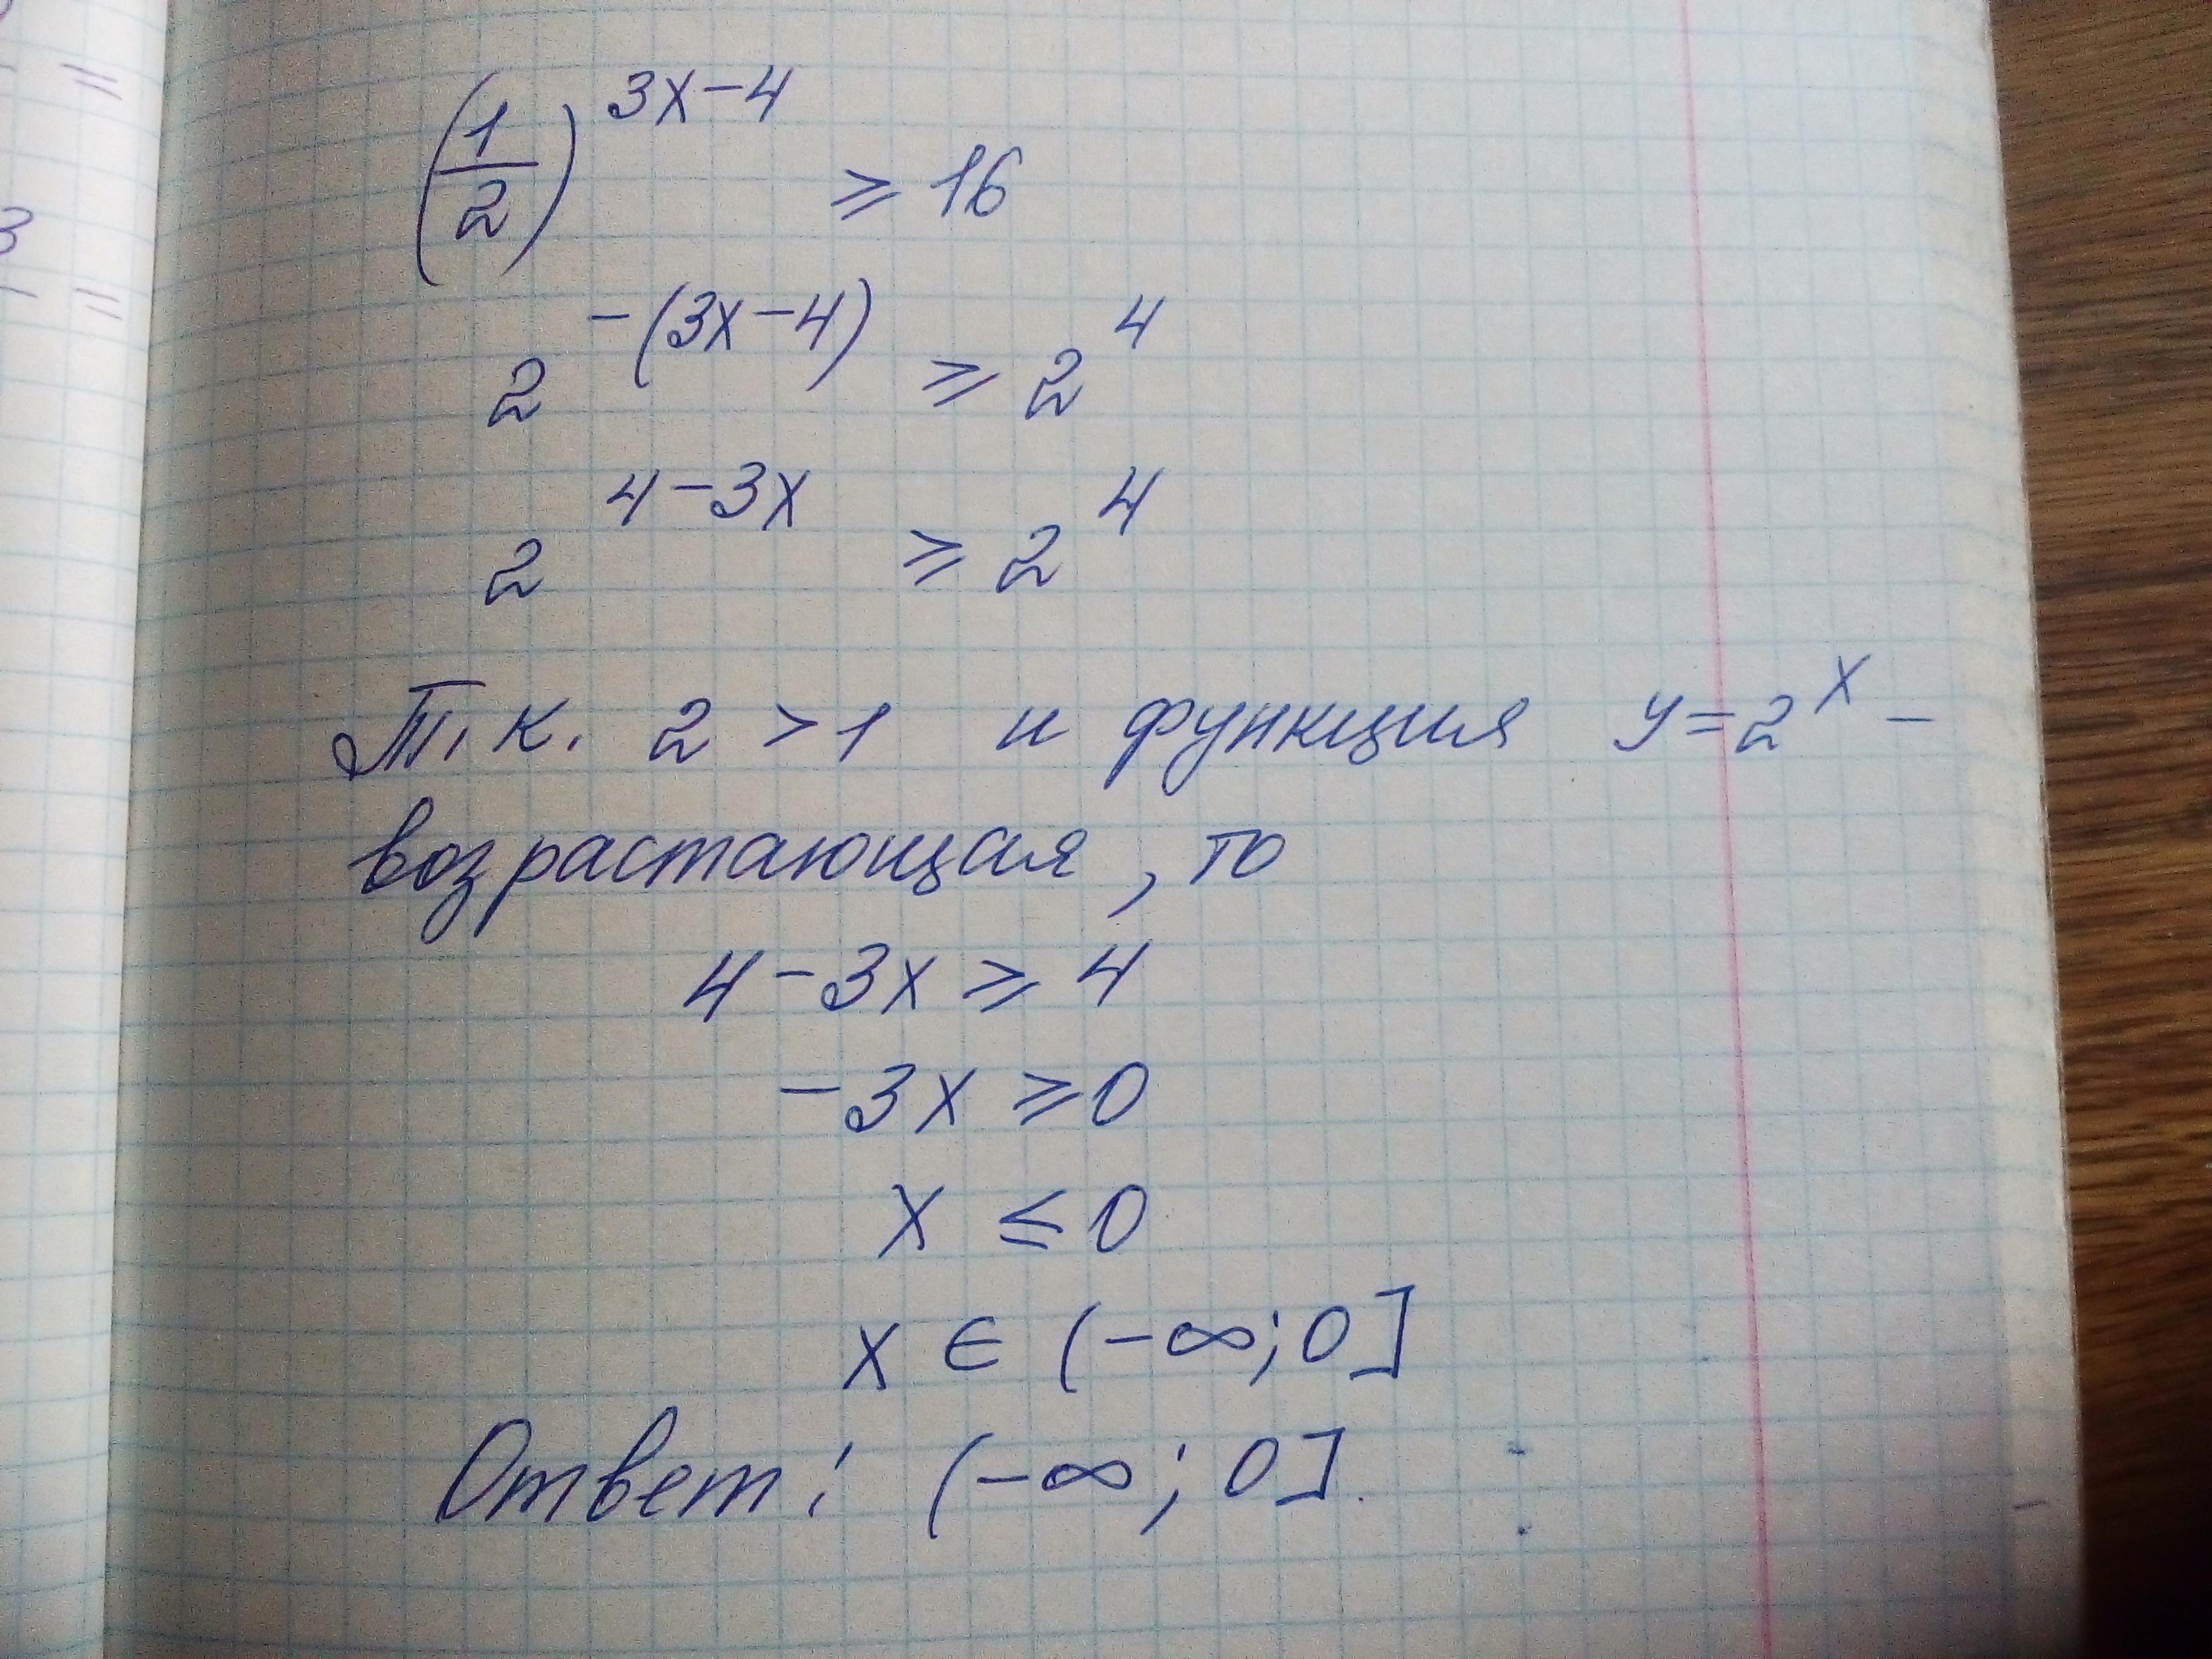 =
3
=
(1/2)^(3x-4) ⩾ 16
2^(-(3x-4)) ⩾ 2^4
2^(4-3x) ⩾ 2^4
Т.к. 2 > 1 и функция y=2^x -
возрастающая, то
4-3x ⩾ 4
-3x ⩾ 0
x ⩽ 0
x ∈ (-∞; 0]
Ответ: (-∞; 0].